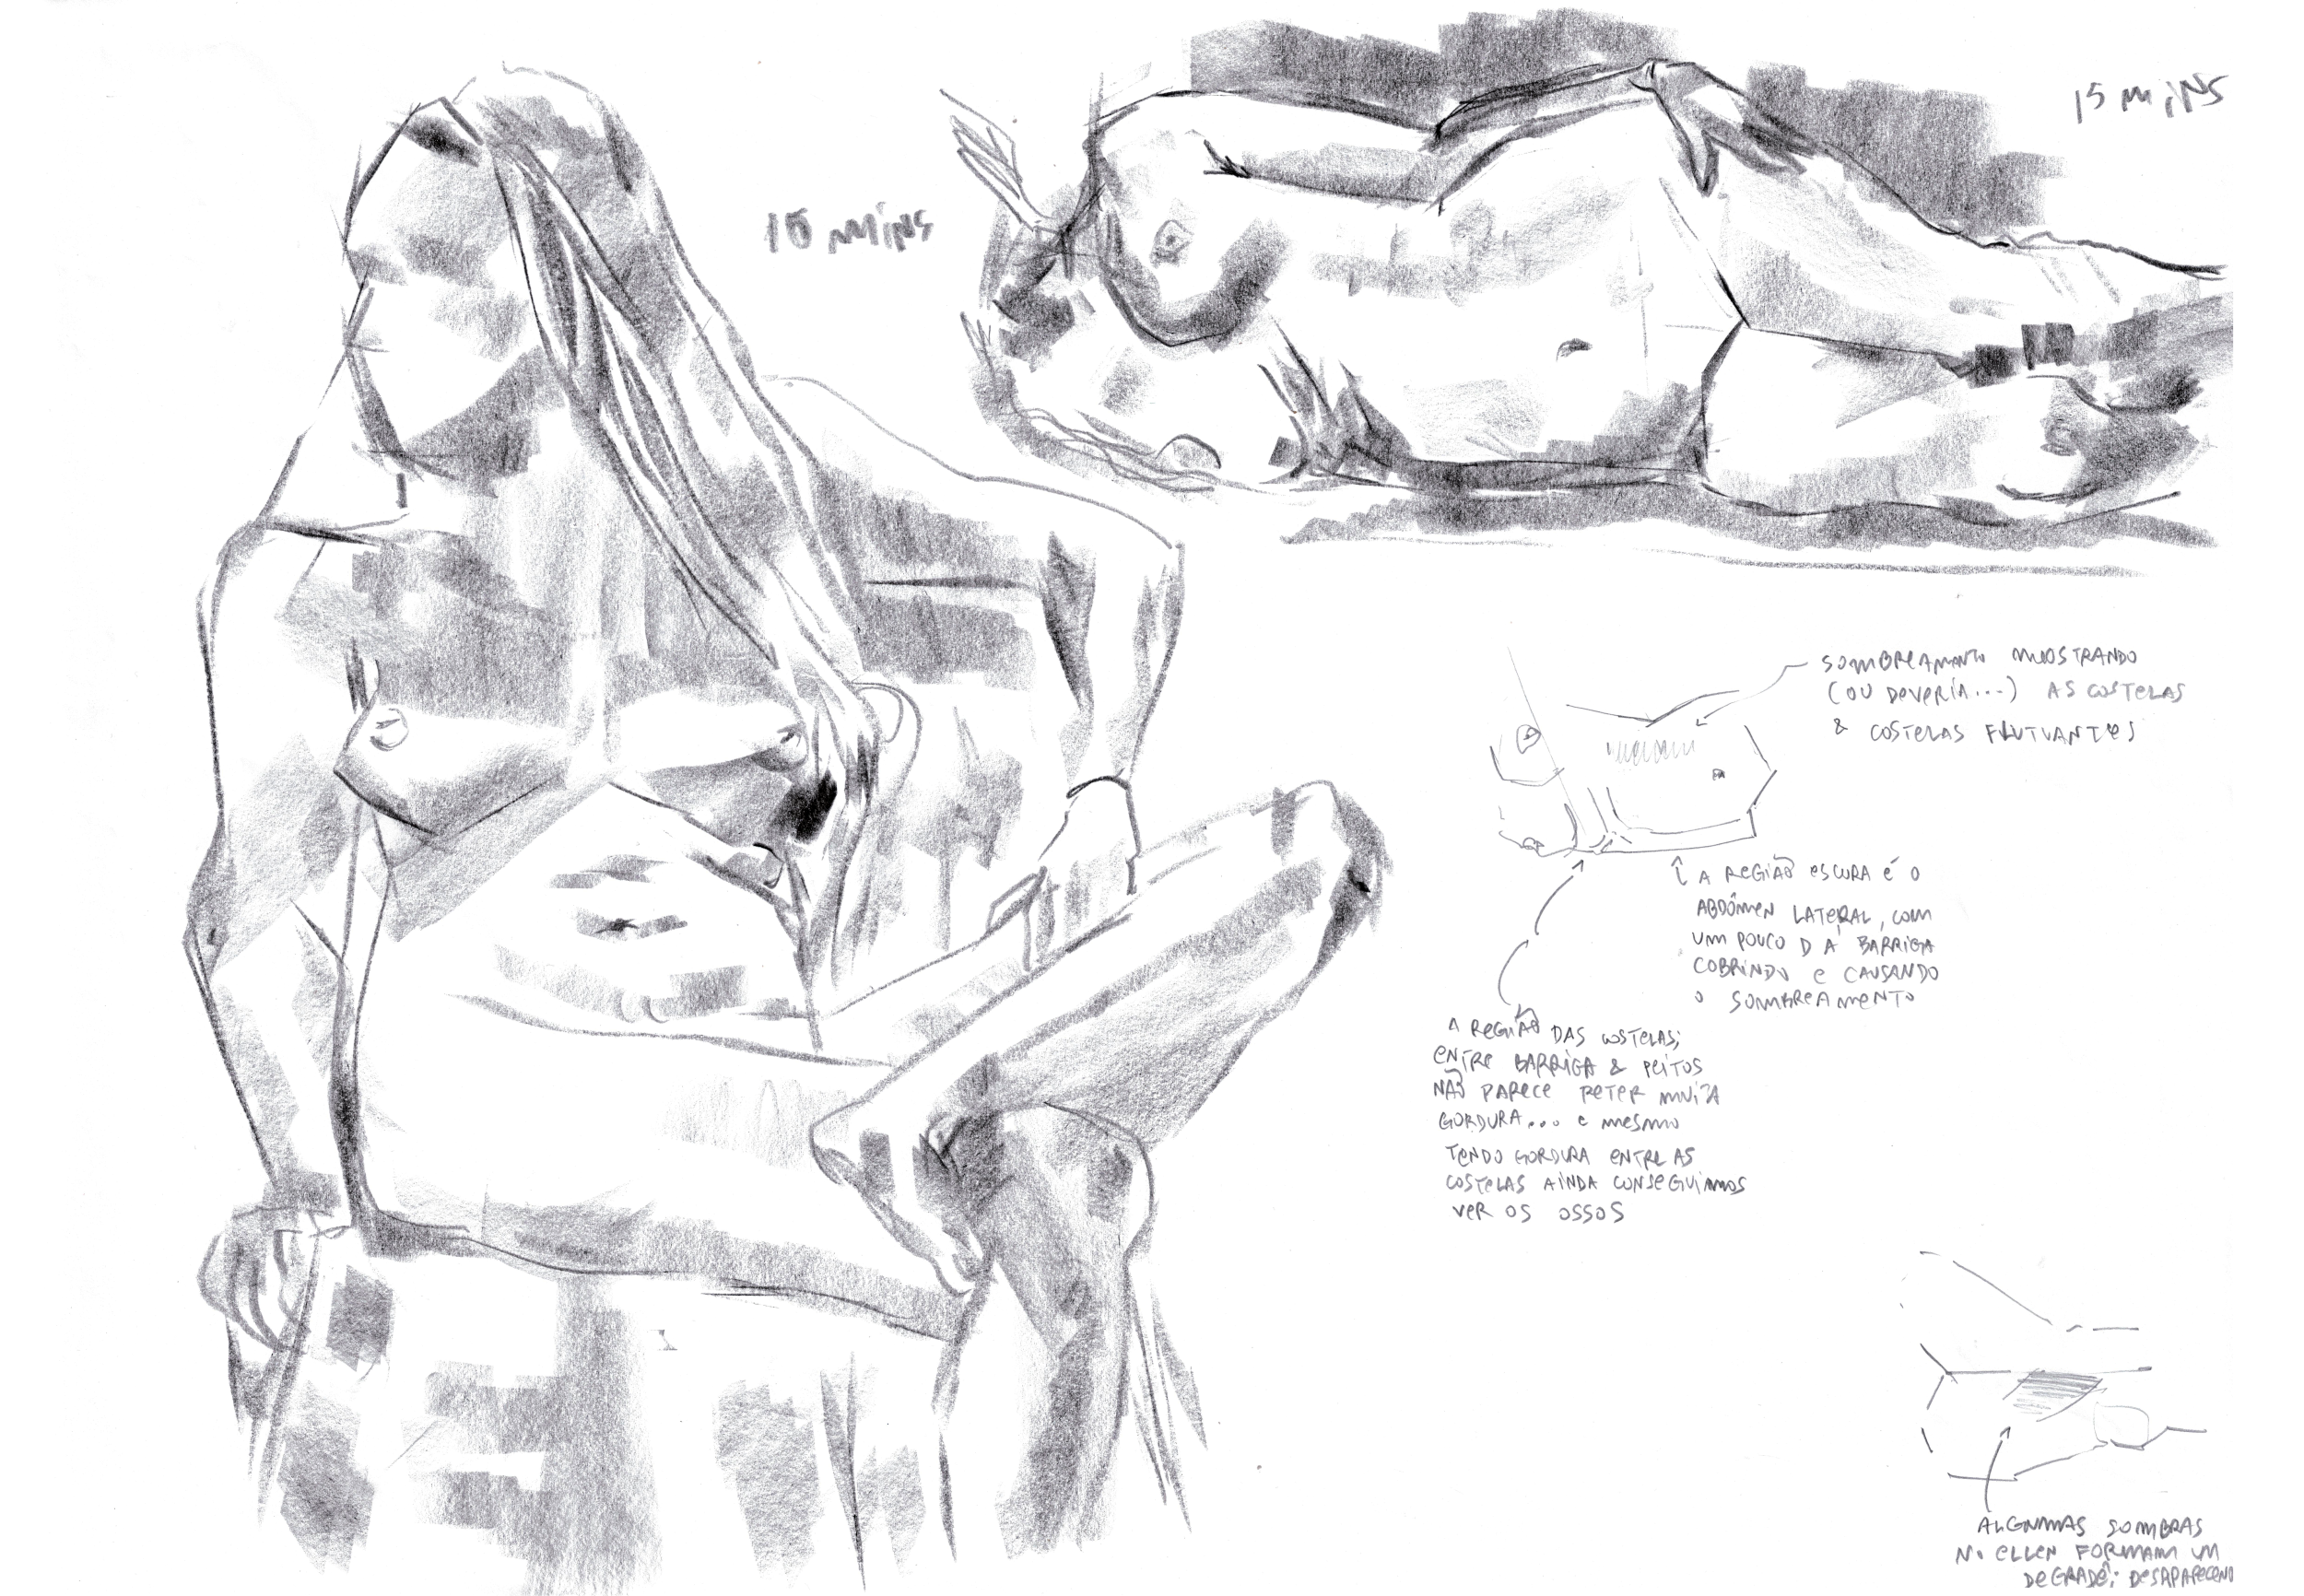 15 mins
15 mins
SOMBREAMENTO MOSTRANDO
(OU DEVERIA...) AS COSTELAS
& COSTELAS FLUTUANTES
A REGIÃO ESCURA É O
ABDÔMEN LATERAL, COM
UM POUCO DA BARRIGA
COBRINDO E CAUSANDO
O SOMBREAMENTO
A REGIÃO DAS COSTELAS;
ENTRE BARRIGA & PEITOS
NÃO PARECE RETER MUITA
GORDURA... E MESMO
TENDO GORDURA ENTRE AS
COSTELAS AINDA CONSEGUIMOS
VER OS OSSOS
ALGUMAS SOMBRAS
ELLEN FORMAM UM
DEGRADÊ; DESAPARECEND